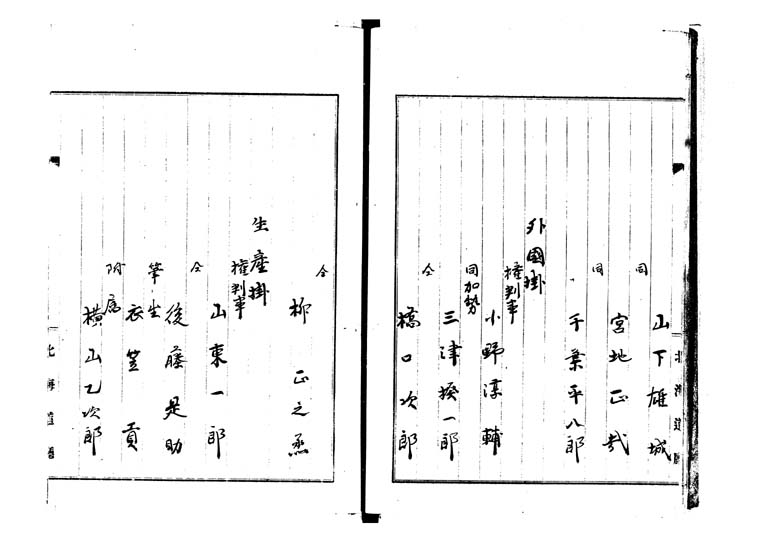 山下雄城
同
宮地正哉
同
千葉平八郎
外國掛
權判事
小野淳輔
同加勢
三津揆一郎
仝
橋口次郎
仝
柳正之丞
生產掛
權判事
山東一郎
仝
後藤是助
筆生
衣笠貢
附属
横山乙次郎
北海道廳
北海道廳